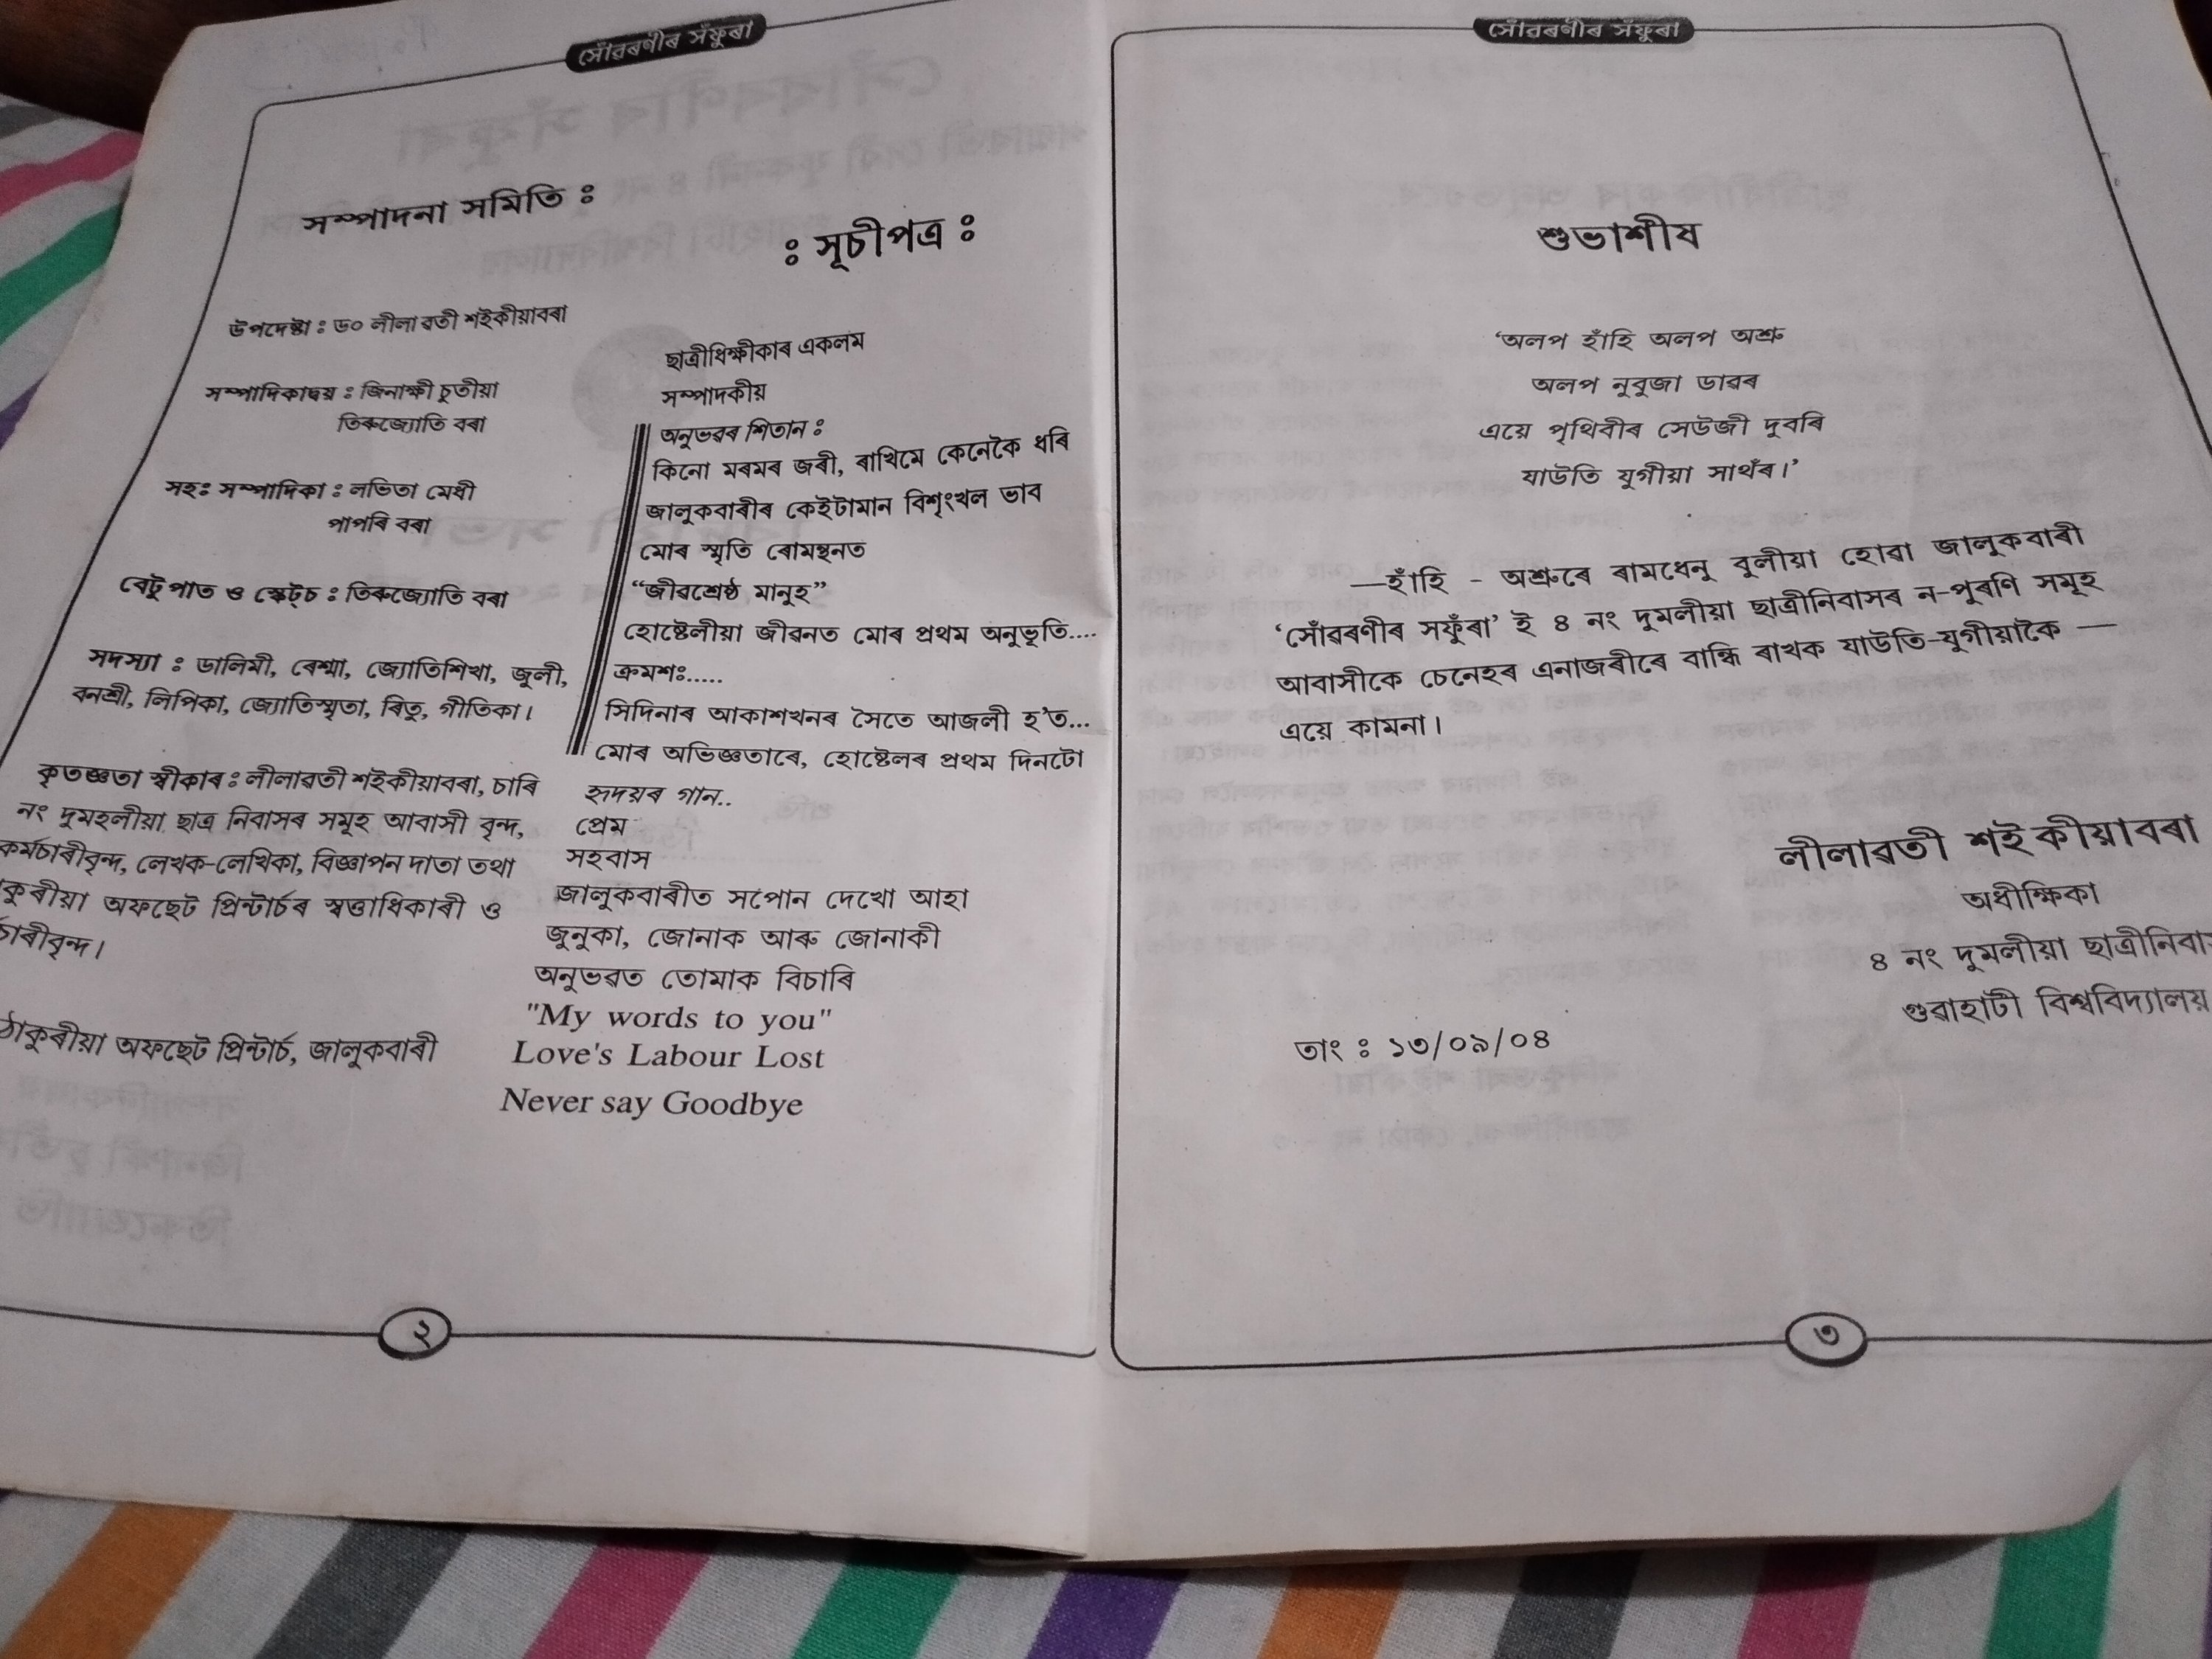 সোঁৱৰণীৰ সঁফুৰা
সম্পাদনা সমিতি ঃ
উপদেষ্টা ঃ ড০ লীলাৱতী শইকীয়াবৰা
সম্পাদিকাদ্বয় ঃ জিনাক্ষী চুতীয়া
তিৰুজ্যোতি বৰা
সহঃ সম্পাদিকা ঃ লভিতা মেধী
পাপৰি বৰা
বেটুপাত ও স্কেট্চ ঃ তিৰুজ্যোতি বৰা
সদস্যা ঃ ডালিমী, ৰেশ্মা, জ্যোতিশিখা, জুলী,
বনশ্ৰী, লিপিকা, জ্যোতিস্মৃতা, ৰিতু, গীতিকা।
কৃতজ্ঞতা স্বীকাৰ ঃ লীলাৱতী শইকীয়াবৰা, চাৰি
নং দুমহলীয়া ছাত্ৰ নিবাসৰ সমূহ আবাসী বৃন্দ,
কৰ্মচাৰীবৃন্দ, লেখক-লেখিকা, বিজ্ঞাপন দাতা তথা
কুৰীয়া অফছেট প্ৰিন্টাৰ্চৰ স্বত্তাধিকাৰী ও
চাৰীবৃন্দ।
ঠাকুৰীয়া অফছেট প্ৰিন্টাৰ্চ, জালুকবাৰী
ঃ সূচীপত্ৰ ঃ
ছাত্ৰীধিক্ষীকাৰ একলম
সম্পাদকীয়
অনুভৱৰ শিতান ঃ
কিনো মৰমৰ জৰী, ৰাখিমে কেনেকৈ ধৰি
জালুকবাৰীৰ কেইটামান বিশৃংখল ভাব
মোৰ স্মৃতি ৰোমন্থনত
“জীৱশ্ৰেষ্ঠ মানুহ”
হোষ্টেলীয়া জীৱনত মোৰ প্ৰথম অনুভূতি....
ক্ৰমশঃ.....
সিদিনাৰ আকাশখনৰ সৈতে আজলী হ'ত...
মোৰ অভিজ্ঞতাৰে, হোষ্টেলৰ প্ৰথম দিনটো
হৃদয়ৰ গান..
প্ৰেম
সহবাস
জালুকবাৰীত সপোন দেখো আহা
জুনুকা, জোনাক আৰু জোনাকী
অনুভৱত তোমাক বিচাৰি
"My words to you"
Love's Labour Lost
Never say Goodbye
২
সোঁৱৰণীৰ সঁফুৰা
শুভাশীষ
‘অলপ হাঁহি অলপ অশ্ৰু
অলপ নুবুজা ডাৱৰ
এয়ে পৃথিবীৰ সেউজী দুবৰি
যাউতি যুগীয়া সাথঁৰ।’
—হাঁহি - অশ্ৰুৰে ৰামধেনু বুলীয়া হোৱা জালুকবাৰী
‘সোঁৱৰণীৰ সফুঁৰা’ ই ৪ নং দুমলীয়া ছাত্ৰীনিবাসৰ ন-পুৰণি সমূহ
আবাসীকে চেনেহৰ এনাজৰীৰে বান্ধি ৰাখক যাউতি-যুগীয়াকৈ —
এয়ে কামনা।
লীলাৱতী শইকীয়াবৰা
অধীক্ষিকা
৪ নং দুমলীয়া ছাত্ৰীনিবাস
গুৱাহাটী বিশ্ববিদ্যালয়
তাং ঃ ১৩/০৯/০৪
৩